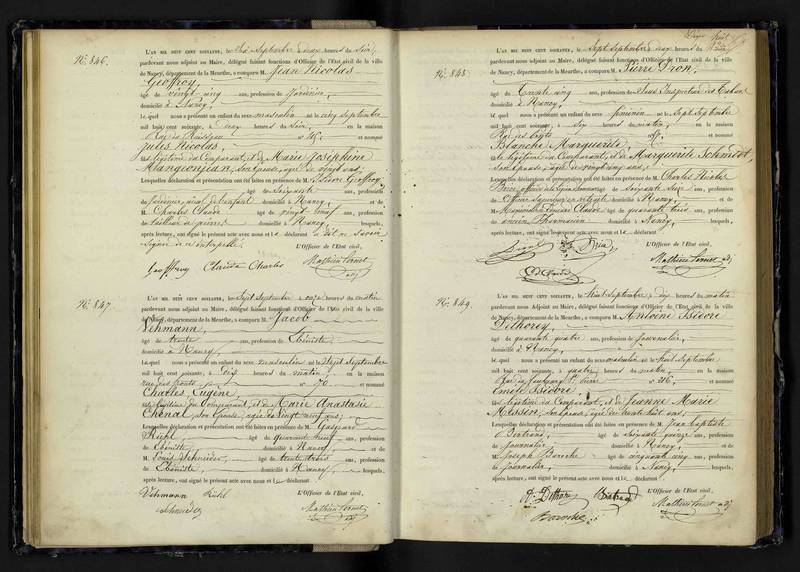 N.º 846.
L'AN MIL HUIT CENT SOIXANTE, le Six Septembre à deux heures du Soir,
pardevant nous adjoint au Maire, délégué faisant fonctions d'Officier de l'Etat civil de la ville
de Nancy, département de la Meurthe, a comparu M. Jean Nicolas
Geoffroy,
âgé de vingt cinq ans, profession de Jardinier,
domicilié à Nancy,
lequel nous a présenté un enfant du sexe masculin né le cinq Septembre
mil huit cent soixante, à deux heures du Soir, en la maison
Rue du Ruisseau n.º et nommé
Jules Nicolas,
fils légitime du Comparant, et de Marie Joséphine
Mangeonjean, son Epouse, âgée de vingt ans;
Lesquelles déclaration et présentation ont été faites en présence de M. Geoffroy,
âgé de Soixante ans, profession
de Jardinier, aïeul de l'enfant domicilié à Nancy, et de
M. Charles Claude âgé de vingt neuf ans, profession
de tailleur de pierres domicilié à Nancy lesquels,
après lecture, ont signé le présent acte avec nous et le déclarant a dit ne savoir
Signer de ce interpellé.
L'Officier de l'Etat civil,
Geoffroy Claude Charles Mathieu Cornet adj
N.º 847.
L'AN MIL HUIT CENT SOIXANTE, le Sept Septembre à onze heures du matin
pardevant nous adjoint au Maire, délégué faisant fonctions d'Officier de l'Etat civil de la ville
de Nancy, département de la Meurthe, a comparu M. Jacob
Vehmann,
âgé de trente ans, profession de Ebéniste
domicilié à Nancy,
lequel nous a présenté un enfant du sexe masculin né le Sept Septembre
mil huit cent soixante, à Six heures du matin, en la maison
rue des ponts, n.º 70 et nommé
Charles Eugène
fils légitime du Comparant, et de Marie Anastasie
Chenal, son Epouse, âgée de vingt neuf ans;
Lesquelles déclaration et présentation ont été faites en présence de M. Gaspard
Rühl âgé de quarante huit ans, profession
de Ebéniste domicilié à Nancy et de
M. Louis Schneider, âgé de trente trois ans, profession
de Ebéniste, domicilié à Nancy lesquels,
après lecture, ont signé le présent acte avec nous et le déclarant
L'Officier de l'Etat civil,
Vehmann Rühl
Schneider Mathieu Cornet adj
N.º 848.
L'AN MIL HUIT CENT SOIXANTE, le Sept Septembre à deux heures du
pardevant nous adjoint au Maire, délégué faisant fonctions d'Officier de l'Etat civil de la ville
de Nancy, département de la Meurthe, a comparu M. Pierre Dron,
âgé de trente cinq ans, profession de Sous Inspecteur des
domicilié à Nancy,
lequel nous a présenté un enfant du sexe féminin né le Sept Septembre
mil huit cent soixante, à Six heures du matin, en la maison
Rue n.º et nommé
Blanche Marguerite,
fille légitime du Comparant, et de Marguerite Schmidt,
son Epouse, âgée de vingt cinq ans;
Lesquelles déclaration et présentation ont été faites en présence de M. Charles Nicolas
âgé de soixante six ans, profession
de Officier en retraite domicilié à Nancy, et de
M. Claude âgé de quarante trois ans, profession
de ancien Pharmacien domicilié à Nancy, lesquels,
après lecture, ont signé le présent acte avec nous et le déclarant
L'Officier de l'Etat civil,
Mathieu Cornet adj
N.º 849.
L'AN MIL HUIT CENT SOIXANTE, le huit Septembre à dix heures du matin
pardevant nous Adjoint au Maire, délégué faisant fonctions d'Officier de l'Etat civil de la ville
de Nancy, département de la Meurthe, a comparu M. Antoine Isidore
Dethorey,
âgé de quarante quatre ans, profession de Journalier,
domicilié à Nancy,
lequel nous a présenté un enfant du sexe masculin né le huit Septembre
mil huit cent soixante, à quatre heures du matin, en la maison
Rue du faubourg St. Pierre n.º et nommé
Emile Isidore
fils légitime du Comparant, et de Jeanne Marie
Messier, son Epouse, âgée de trente huit ans;
Lesquelles déclaration et présentation ont été faites en présence de M. Jean Baptiste
Bertrand, âgé de soixante quinze ans, profession
de Journalier domicilié à Nancy, et de
M. Joseph Baroche âgé de cinquante cinq ans, profession
de Journalier, domicilié à Nancy lesquels,
après lecture, ont signé le présent acte avec nous et le déclarant
L'Officier de l'Etat civil,
Dethorey Bertrand
Baroche Mathieu Cornet adj